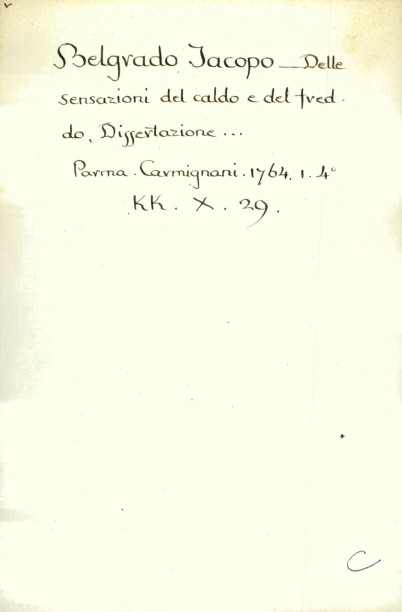 Belgrado Jacopo — Delle
sensazioni del caldo e del fred-
do, Dissertazione ...
Parma. Carmignani. 1764. 1. 4°
KK. X. 29.
C